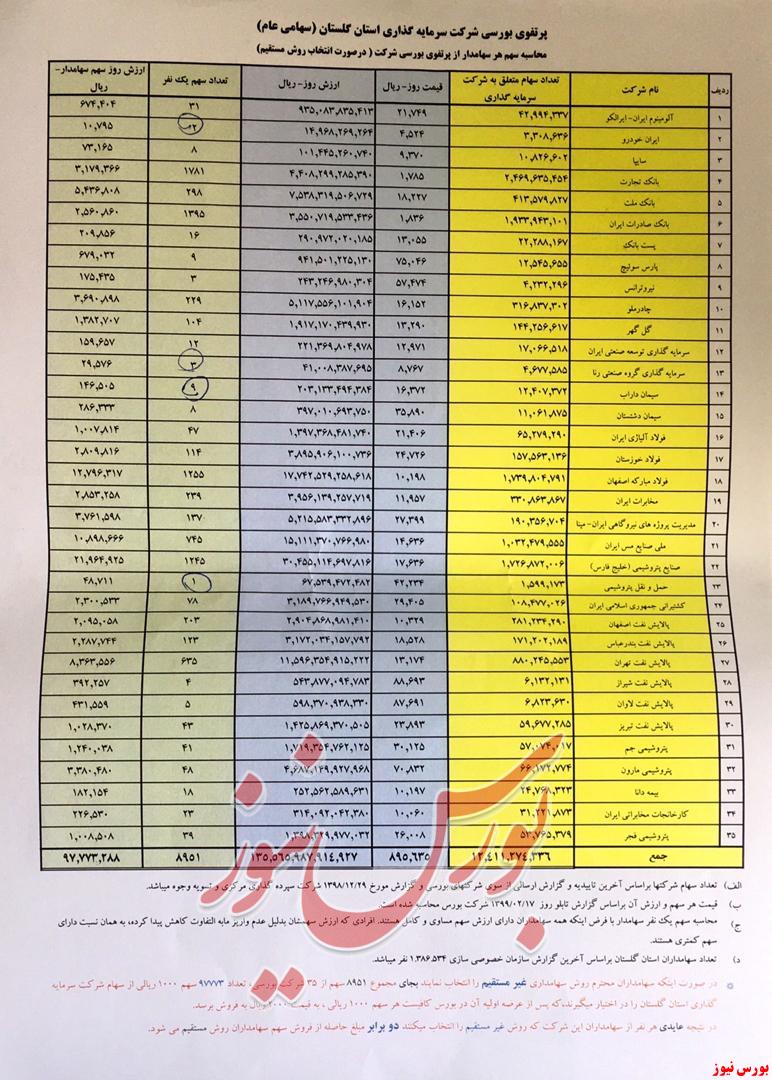 پرتفوی بورسی شرکت سرمایه گذاری استان گلستان (سهامی عام)
محاسبه سهم هر سهامدار از پرتفوی بورسی شرکت ( درصورت انتخاب روش مستقیم)
ردیف نام شرکت تعداد سهام متعلق به شرکت سرمایه گذاری قیمت روز- ریال ارزش روز- ریال تعداد سهم یک نفر ارزش روز سهم سهامدار- ریال
۱ آلومینوم ایران- ایرالکو ۴۲,۹۹۴,۳۳۷ ۲۱,۷۴۹ ۹۳۵,۰۸۳,۸۳۵,۴۱۳ ۳۱ ۶۷۴,۴۰۴
۲ ایران خودرو ۳,۳۰۸,۶۳۶ ۴,۵۲۴ ۱۴,۹۶۸,۲۶۹,۲۶۴ ۲ ۱۰,۷۹۵
۳ سایپا ۱۰,۸۲۶,۶۰۲ ۹,۳۷۰ ۱۰۱,۴۴۵,۲۶۰,۷۴۰ ۸ ۷۳,۱۶۵
۴ بانک تجارت ۲,۴۶۹,۶۳۵,۴۵۴ ۱,۷۸۵ ۴,۴۰۸,۲۹۹,۲۸۵,۳۹۰ ۱۷۸۱ ۳,۱۷۹,۳۶۶
۵ بانک ملت ۴۱۳,۵۷۹,۸۲۷ ۱۸,۲۲۷ ۷,۵۳۸,۳۱۹,۵۰۶,۷۲۹ ۲۹۸ ۵,۴۳۶,۸۰۸
۶ بانک صادرات ایران ۱,۹۳۳,۹۴۳,۱۰۱ ۱,۸۳۶ ۳,۵۵۰,۷۱۹,۵۳۳,۴۳۶ ۱۳۹۵ ۲,۵۶۰,۸۶۰
۷ پست بانک ۲۲,۲۸۸,۱۶۷ ۱۳,۰۵۵ ۲۹۰,۹۷۲,۰۲۰,۱۸۵ ۱۶ ۲۰۹,۸۵۶
۸ پارس سوئیچ ۱۲,۵۴۵,۶۵۵ ۷۵,۰۴۶ ۹۴۱,۵۰۱,۲۲۵,۱۳۰ ۹ ۶۷۹,۰۳۲
۹ نیروترانس ۴,۲۳۲,۲۹۶ ۵۷,۴۷۴ ۲۴۳,۲۴۶,۹۸۰,۳۰۴ ۳ ۱۷۵,۴۳۵
۱۰ چادرملو ۳۱۶,۸۳۷,۳۰۲ ۱۶,۱۵۲ ۵,۱۱۷,۵۵۶,۱۰۱,۹۰۴ ۲۲۹ ۳,۶۹۰,۸۹۸
۱۱ گل گهر ۱۴۴,۲۵۶,۶۱۷ ۱۳,۲۹۰ ۱,۹۱۷,۱۷۰,۴۳۹,۹۳۰ ۱۰۴ ۱,۳۸۲,۷۰۷
۱۲ سرمایه گذاری توسعه صنعتی ایران ۱۷,۰۶۶,۵۱۸ ۱۲,۹۷۱ ۲۲۱,۳۶۹,۸۰۴,۹۷۸ ۱۲ ۱۵۹,۶۵۷
۱۳ سرمایه گذاری گروه صنعتی رنا ۴,۶۷۷,۵۸۵ ۸,۷۶۷ ۴۱,۰۰۸,۳۸۷,۶۹۵ ۳ ۲۹,۵۷۶
۱۴ سیمان داراب ۱۲,۴۰۷,۳۷۲ ۱۶,۳۷۲ ۲۰۳,۱۳۳,۴۹۴,۳۸۴ ۹ ۱۴۶,۵۰۵
۱۵ سیمان دشتستان ۱۱,۰۶۱,۸۷۵ ۳۵,۸۹۰ ۳۹۷,۰۱۰,۶۹۳,۷۵۰ ۸ ۲۸۶,۳۳۳
۱۶ فولاد آلیاژی ایران ۶۵,۲۷۹,۲۹۰ ۲۱,۴۰۶ ۱,۳۹۷,۳۶۸,۴۸۱,۷۴۰ ۴۷ ۱,۰۰۷,۸۱۴
۱۷ فولاد خوزستان ۱۵۷,۵۶۳,۱۳۶ ۲۴,۷۲۶ ۳,۸۹۵,۹۰۶,۱۰۰,۷۳۶ ۱۱۴ ۲,۸۰۹,۸۱۶
۱۸ فولاد مبارکه اصفهان ۱,۷۳۹,۸۰۴,۷۹۱ ۱۰,۱۹۸ ۱۷,۷۴۲,۵۲۹,۲۵۸,۶۱۸ ۱۲۵۵ ۱۲,۷۹۶,۳۱۷
۱۹ مخابرات ایران ۳۳۰,۸۶۳,۸۶۷ ۱۱,۹۵۷ ۳,۹۵۶,۱۳۹,۲۵۷,۷۱۹ ۲۳۹ ۲,۸۵۳,۲۵۸
۲۰ مدیریت پروژه های نیروگاهی ایران- مپنا ۱۹۰,۳۵۶,۷۰۴ ۲۷,۳۹۹ ۵,۲۱۵,۵۸۳,۳۳۲,۸۹۶ ۱۳۷ ۳,۷۶۱,۵۹۸
۲۱ ملی صنایع مس ایران ۱,۰۳۲,۴۷۹,۵۵۵ ۱۴,۶۳۶ ۱۵,۱۱۱,۳۷۰,۷۶۶,۹۸۰ ۷۴۵ ۱۰,۸۹۸,۶۶۶
۲۲ صنایع پتروشیمی (خلیج فارس) ۱,۷۲۶,۸۷۲,۰۰۶ ۱۷,۶۳۶ ۳۰,۴۵۵,۱۱۴,۶۹۷,۸۱۶ ۱۲۴۵ ۲۱,۹۶۴,۹۲۵
۲۳ حمل و نقل پتروشیمی ۱,۵۹۹,۱۷۳ ۴۲,۲۳۴ ۶۷,۵۳۹,۴۷۲,۴۸۲ ۱ ۴۸,۷۱۱
۲۴ کشتیرانی جمهوری اسلامی ایران ۱۰۸,۴۷۷,۰۲۶ ۲۹,۴۰۵ ۳,۱۸۹,۷۶۶,۹۴۹,۵۳۰ ۷۸ ۲,۳۰۰,۵۳۳
۲۵ پالایش نفت اصفهان ۲۸۱,۲۳۴,۲۹۰ ۱۰,۳۲۹ ۲,۹۰۴,۸۶۸,۹۸۱,۴۱۰ ۲۰۳ ۲,۰۹۵,۰۵۸
۲۶ پالایش نفت بندرعباس ۱۷۱,۲۰۲,۱۸۹ ۱۸,۵۲۸ ۳,۱۷۲,۰۳۴,۱۵۷,۷۹۲ ۱۲۳ ۲,۲۸۷,۷۴۴
۲۷ پالایش نفت تهران ۸۸۰,۲۴۵,۵۵۳ ۱۳,۱۷۴ ۱۱,۵۹۶,۳۵۴,۹۱۵,۲۲۲ ۶۳۵ ۸,۳۶۳,۵۵۶
۲۸ پالایش نفت شیراز ۶,۱۳۲,۱۳۱ ۸۸,۶۹۳ ۵۴۳,۸۷۷,۰۹۴,۷۸۳ ۴ ۳۹۲,۲۵۷
۲۹ پالایش نفت لاوان ۶,۸۲۳,۶۳۰ ۸۷,۶۹۱ ۵۹۸,۳۷۰,۹۳۸,۳۳۰ ۵ ۴۳۱,۵۵۹
۳۰ پالایش نفت تبریز ۵۹,۶۷۷,۲۸۵ ۲۳,۸۹۳ ۱,۴۲۵,۸۶۹,۳۷۰,۵۰۵ ۴۳ ۱,۰۲۸,۳۷۰
۳۱ پتروشیمی جم ۵۷,۰۷۴,۰۱۷ ۳۰,۱۲۵ ۱,۷۱۹,۳۵۴,۷۶۲,۱۲۵ ۴۱ ۱,۲۴۰,۰۳۸
۳۲ پتروشیمی مارون ۶۶,۱۷۲,۷۷۴ ۷۰,۸۳۲ ۴,۶۸۷,۱۴۹,۹۲۷,۹۶۸ ۴۸ ۳,۳۸۰,۴۸۰
۳۳ بیمه دانا ۲۴,۷۶۸,۳۲۳ ۱۰,۱۹۷ ۲۵۲,۵۶۲,۵۸۹,۶۳۱ ۱۸ ۱۸۲,۱۵۴
۳۴ کارخانجات مخابراتی ایران ۳۱,۲۲۱,۸۷۳ ۱۰,۰۶۰ ۳۱۴,۰۹۲,۰۴۲,۳۸۰ ۲۳ ۲۲۶,۵۳۰
۳۵ پتروشیمی فجر ۵۳,۷۶۵,۳۷۹ ۲۶,۰۰۸ ۱,۳۹۸,۳۲۹,۹۷۷,۰۳۲ ۳۹ ۱,۰۰۸,۵۰۸
جمع ۱۲,۴۱۱,۲۷۴,۳۳۶ ۸۹۵,۶۳۵ ۱۳۵,۵۶۵,۹۸۷,۹۱۴,۹۲۷ ۸۹۵۱ ۹۷,۷۷۳,۲۸۸
بورس نیوز
الف) تعداد سهام شرکتها براساس آخرین تاییدیه و گزارش ارسالی از سوی شرکتهای بورسی و گزارش مورخ ۱۳۹۸/۱۲/۲۹ شرکت سپرده گذاری مرکزی و تسویه وجوه میباشد.
ب) قیمت هر سهم و ارزش آن براساس گزارش تابلو روز ۱۳۹۹/۰۲/۱۷ شرکت بورس محاسبه شده است.
ج) محاسبه سهم یک نفر سهامدار با فرض اینکه همه سهامداران دارای ارزش سهم مساوی و کامل هستند. افرادی که ارزش سهمشان بدلیل عدم واریز مابه التفاوت کاهش پیدا کرده، به همان نسبت دارای
سهم کمتری هستند.
د) تعداد سهامداران استان گلستان براساس آخرین گزارش سازمان خصوصی سازی ۱,۳۸۶,۵۳۴ نفر میباشد.
در صورت اینکه سهامداران محترم روش سهامداری غیر مستقیم را انتخاب نمایند بجای مجموع ۸۹۵۱ سهم از ۳۵ شرکت بورسی، تعداد ۹۷۷۷۳ سهم ۱۰۰۰ ریالی از سهام شرکت سرمایه
گذاری استان گلستان را در اختیار میگیرند،که پس از عرضه اولیه آن در بورس کافیست هر سهم ۱۰۰۰ ریالی ، به قیمت ۲۰۰۰ ریال به فروش برسد.
در نتیجه عایدی هر نفر از سهامداران این شرکت که روش غیر مستقیم را انتخاب میکنند دو برابر مبلغ حاصله از فروش سهم سهامداران روش مستقیم می شود.
بورس نیوز